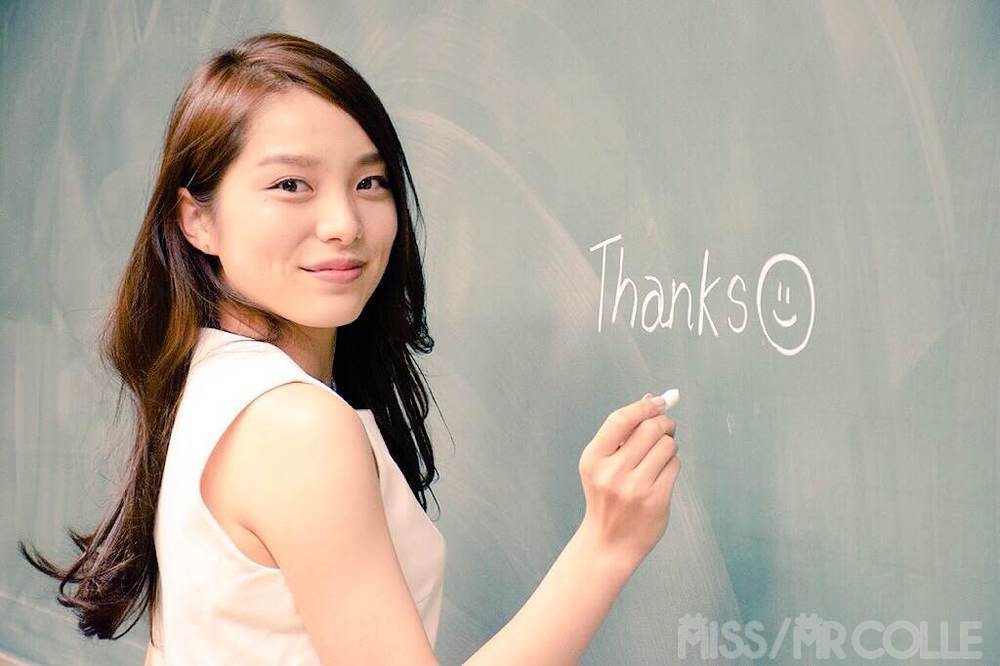 Thanks
MISS/MR COLLE